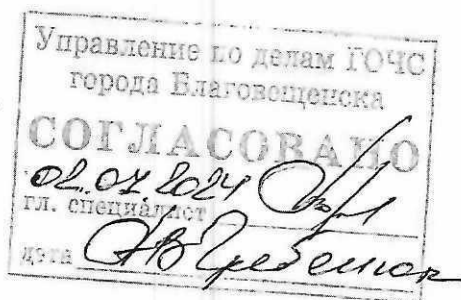 Управление по делам ГОЧС
города Благовещенска
СОГЛАСОВАНО
02.07.2024
гл. специалист
дата АВ Гребенюк